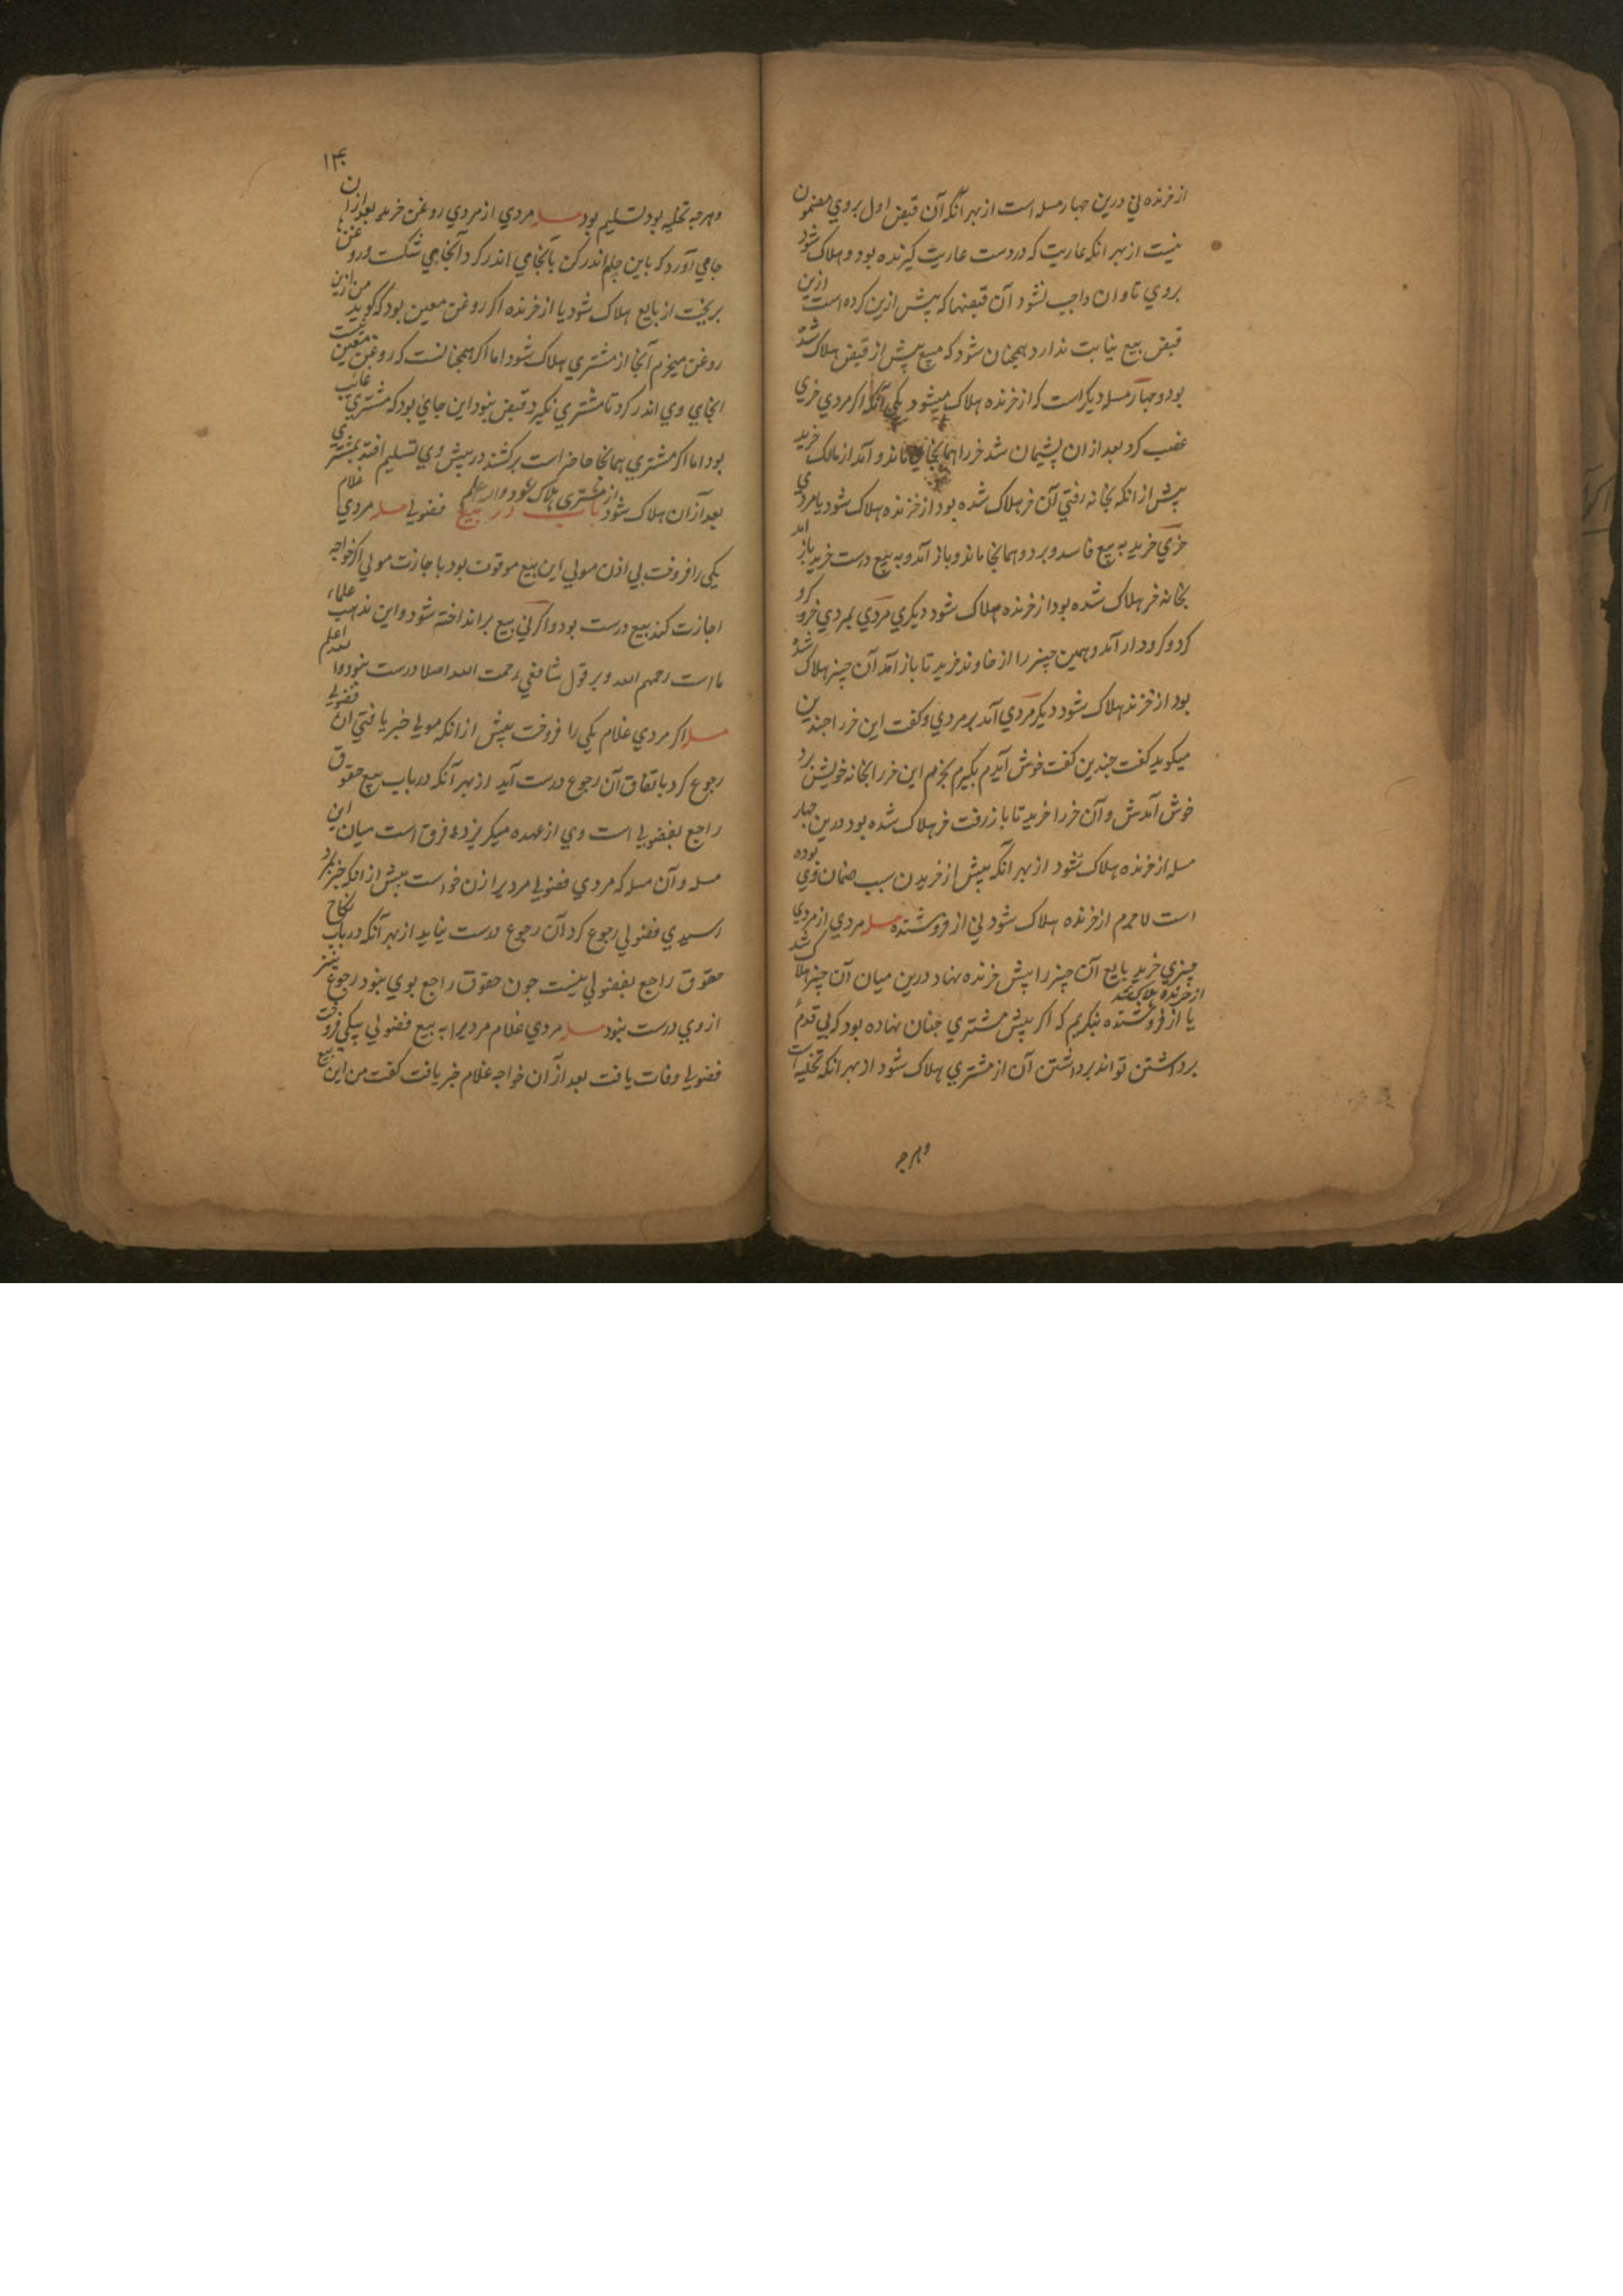 از خرنده نی درین چهار مسله است از بهر آنکه آن قبض اول بروی مضمون
نیست از بهر انکه عاریت که در دست عاریت کیرنده بود و هلاک شود
بروی تاوان واجب نشود آن قبضها که پیش ازین کرده است ازین
قبض بیع نیابت ندارد همچنان شود که مبیع پیش از قبض هلاک شد
بود و چهار مسله دیکر است که از خرنده هلاک میشود یکی آنکه اکر مردی خری
غصب کرد بعد ازان پشیمان شد خر را همانجای ماند و آمد از مالک خرید
پیش از انکه بخانه رفتی آن خر هلاک شده بود از خرنده هلاک شود یا مردی
خری خرید به بیع فاسد و برد و همانجا ماند و باز آمد و به بیع درست خرید باز آمد
بخانه خر هلاک شده بود از خرنده هلاک شود دیکری مردی بمردی خر کرو
کرد و کرودار آمد و همین چیز را از خاوند خرید تا باز آمد آن چیز هلاک شده
بود از خرنده هلاک شود دیکر مردی آمد بر مردی و کفت این خر را چندین
میکوید کفت چندین کفت خوش آیدم بکیرم بخرم این خر را بخانه خویش برد
خوش آمدش و آن خر را خرید تا باز رفت خر هلاک شده بود درین چهار
مسله از خرنده هلاک شود از بهر آنکه پیش از خریدن سبب ضمان وی بوده
است لاجرم از خرنده هلاک شود نی از فروشنده مسله مردی از مردی
چیزی خرید بایع آن چیز را پیش خرنده نهاد درین میان آن چیز هلاک شد
از خرنده هلاک شد
یا از فروشنده بنکریم که اکر پیش مشتری چنان نهاده بود که بی قدم
برداشتن تواند برداشتن آن از مشتری هلاک شود از بهر انکه تخلیه است
وهرجه
۱۴۰
وهرجه تخلیه بود تسلیم بود مسله مردی از مردی روغن خرید بعد از ان
جامی آورد که باین جام اندر کن بآنجامی اندر کرد آنجامی شکست و روغنها
بریخت از بایع هلاک شود یا از خرنده اکر روغن معین بود که کوید من ازین
روغن میخرم آنجا از مشتری هلاک شود اما اکر همچنانست که روغن معین نیست
انجای وی اندر کرد تا مشتری نکیرد قبض نبود این جای بود که مشتری غائب
بود اما اکر مشتری همانجا حاضر است برکشند در پیش وی تسلیم افتد بمشتری
بعد آزان هلاک شود از مشتری هلاک شود والله اعلم باب در بیع فضولی مسله مردی غلام
یکی را فروخت بی اذن مولی این بیع موقوف بود باجازت مولی اکر خواجه
اجازت کند بیع درست بود و اکر نی بیع برانداخته شود و این مذهب علماء
ما است رحمهم الله و بر قول شافعی رحمت الله اصلا درست نبود والله اعلم
مسله اکر مردی غلام یکی را فروخت پیش از انکه مولی خبر یافتی ان فضولی
رجوع کرد باتفاق آن رجوع درست آید از بهر آنکه در باب بیع حقوق
راجع بفضولی است وی از عهده میکریزد و فرق است میان این
مسله و آن مسله که مردی فضولی مردیرا زن خواست پیش از انکه خبر بمرد
رسیدی فضولی رجوع کرد آن رجوع درست نیاید از بهر آنکه در باب نکاح
حقوق راجع بفضولی نیست چون حقوق راجع بوی نبود رجوع نیز
از وی درست نبود مسله مردی غلام مردیرا به بیع فضولی بیکی فروخت
فضولی وفات یافت بعد از آن خواجه غلام خبر یافت کفت من این بیع